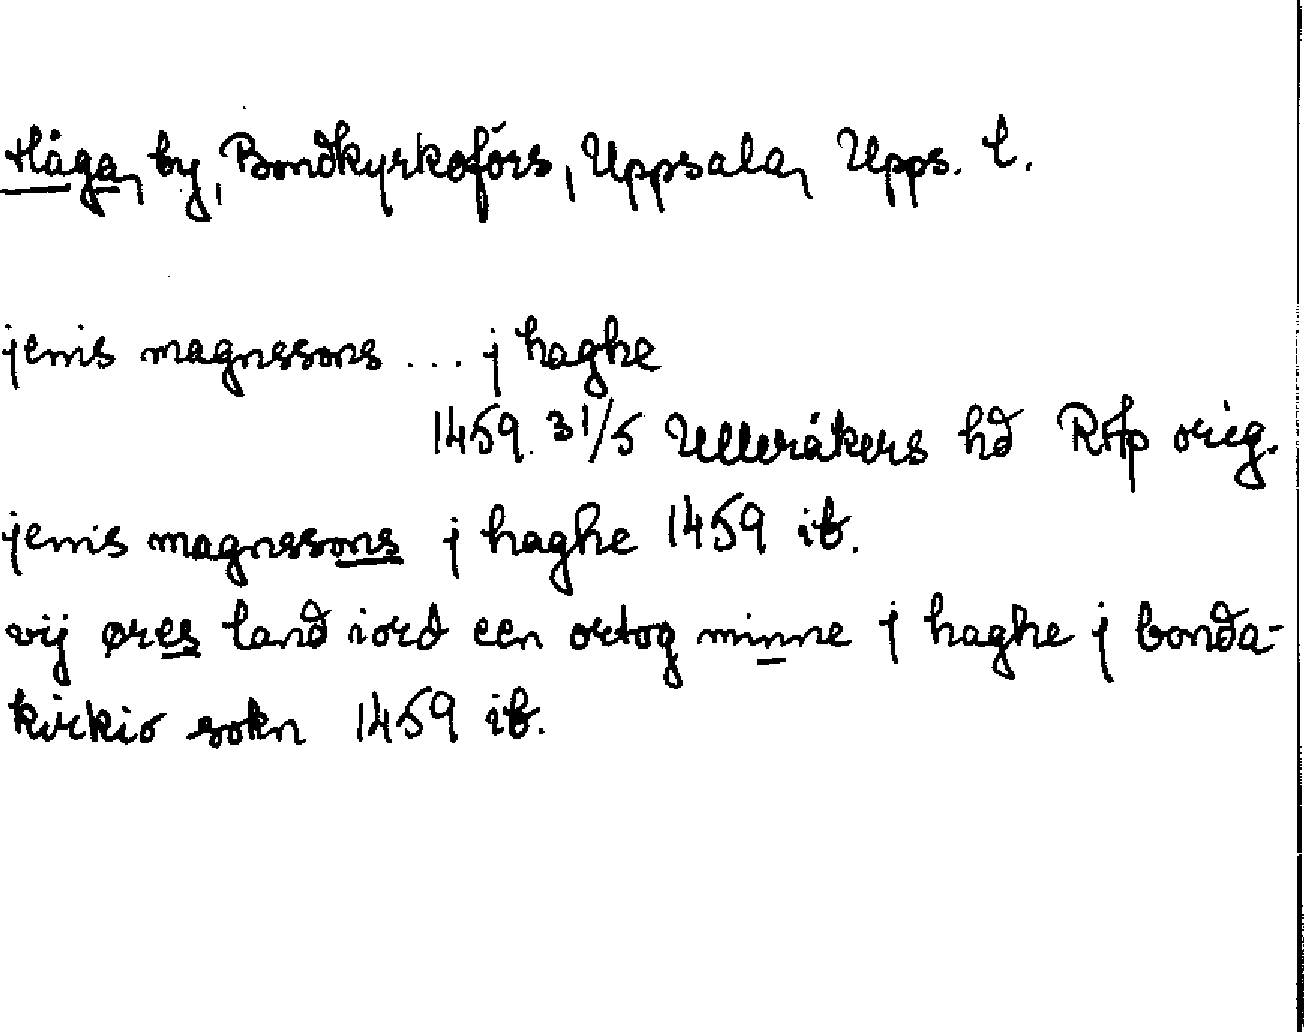 Håga, by, Bondkyrkoförs, Uppsala, Upps. l.
jenis magnssons ... j haghe
1459. 31/5 Ulleråkers hd RAp orig.
jenis magnssons j haghe 1459 ib.
vij øres land iord een ortog minne j haghe j bonda-
kirkio sokn 1459 ib.